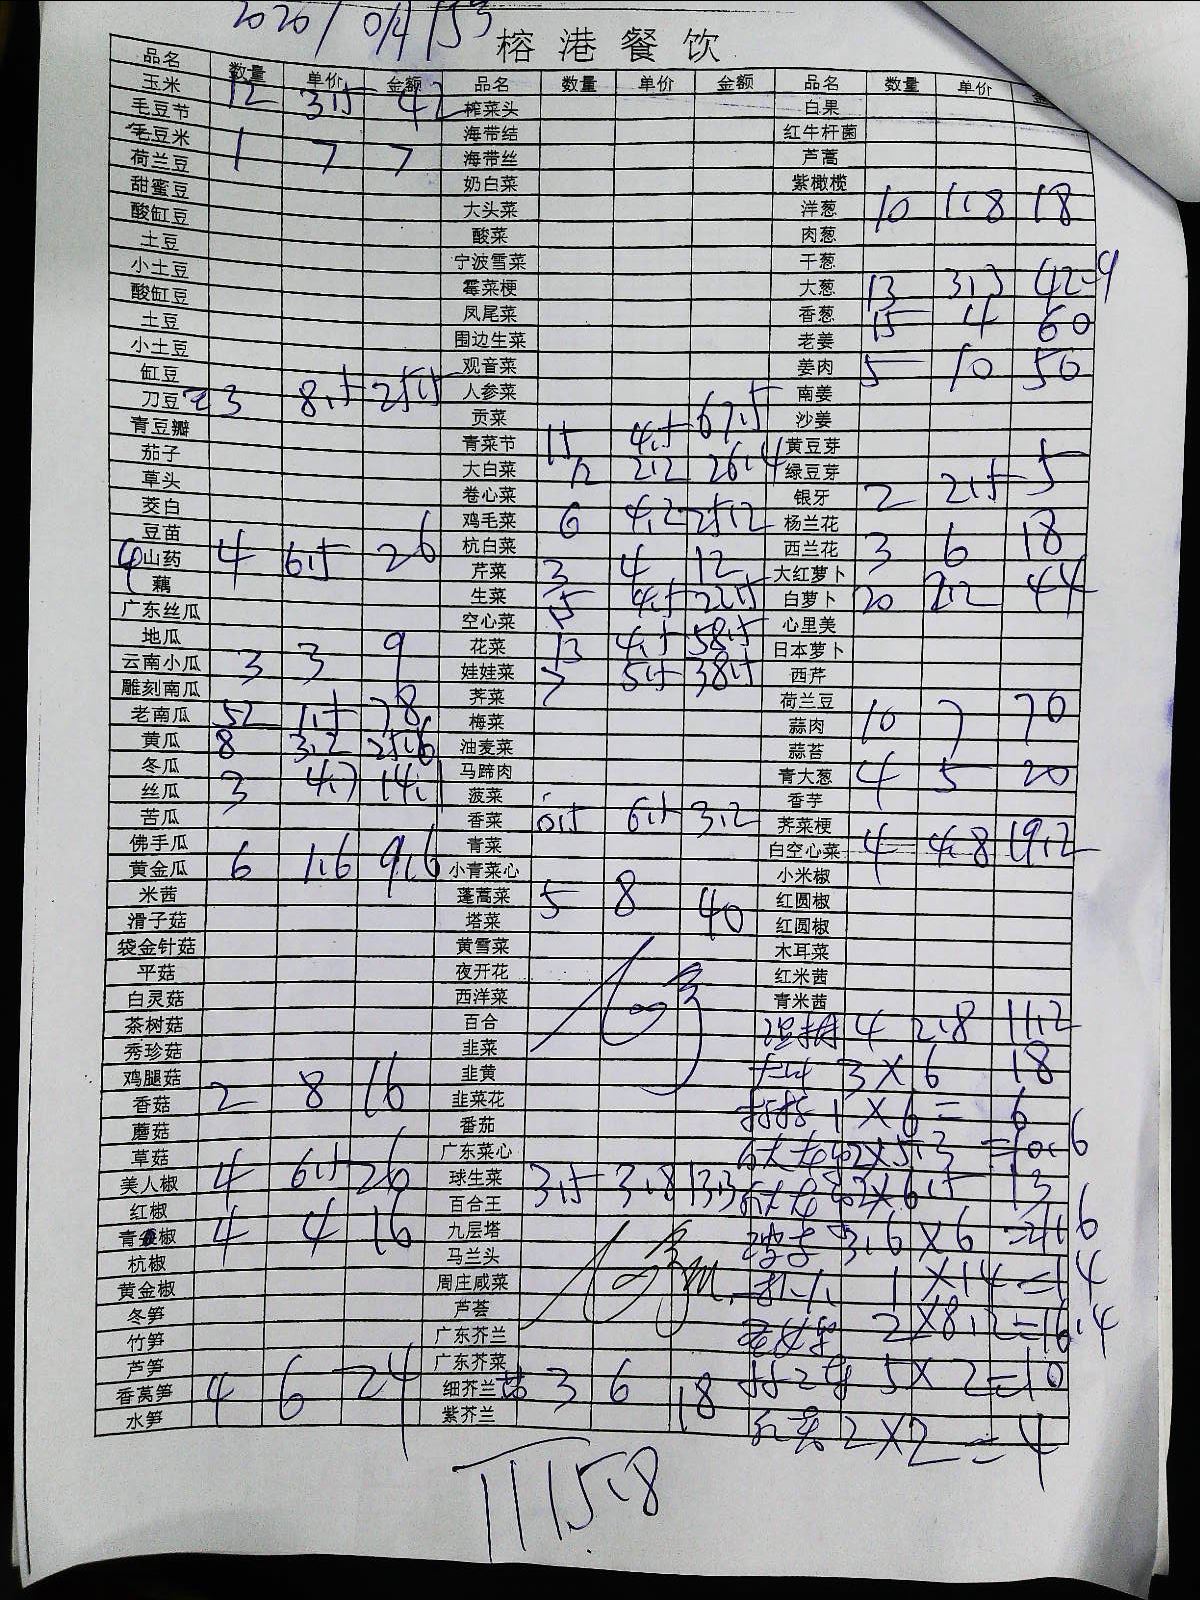 2020/10月15号
榕港餐饮
品名 数量 单价 金额 品名 数量 单价 金额 品名 数量 单价
玉米 12 3.5 42 榨菜头 白果
毛豆节 海带结 红牛杆菌
毛豆米 1 7 7 海带丝 芦蒿
荷兰豆 奶白菜 紫橄榄
甜蜜豆 大头菜 洋葱 10 1.8 18
酸缸豆 酸菜 肉葱
土豆 宁波雪菜 干葱
小土豆 霉菜梗 大葱 13 3.3 42.9
酸缸豆 凤尾菜 香葱 15 4 60
土豆 围边生菜 老姜
小土豆 观音菜 姜肉 5 10 50
缸豆 人参菜 南姜
刀豆 3 8.5 25.5 贡菜 沙姜
青豆瓣 青菜节 15 4.5 67.5 黄豆芽
茄子 大白菜 12 2.2 26.4 绿豆芽
草头 卷心菜 银牙 2 2.5 5
茭白 鸡毛菜 6 4.2 25.2 杨兰花
豆苗 杭白菜 西兰花 3 6 18
山药 4 6.5 26 芹菜 3 4 12 大红萝卜
藕 生菜 5 4.5 22.5 白萝卜 20 2.2 44
广东丝瓜 空心菜 心里美
地瓜 花菜 13 4.5 58.5 日本萝卜
云南小瓜 3 3 9 娃娃菜 7 5.5 38.5 西芹
雕刻南瓜 荠菜 荷兰豆
老南瓜 52 1.5 78 梅菜 蒜肉 10 7 70
黄瓜 8 3.2 25.6 油麦菜 蒜苔
冬瓜 马蹄肉 青大葱 4 5 20
丝瓜 3 4.7 14.1 菠菜 香芋
苦瓜 香菜 0.5 6.5 3.2 荠菜梗
佛手瓜 青菜 白空心菜 4 4.8 19.2
黄金瓜 6 1.6 9.6 小青菜心 小米椒
米茜 蓬蒿菜 5 8 40 红圆椒
滑子菇 塔菜 红圆椒
袋金针菇 黄雪菜 木耳菜
平菇 夜开花 红米茜
白灵菇 西洋菜 青米茜
茶树菇 百合 4 2.8 11.2
秀珍菇 韭菜 3×6 18
鸡腿菇 韭黄
香菇 2 8 16 韭菜花 1×6= 6
蘑菇 番茄
草菇 广东菜心 2×5.3 =10.6
美人椒 4 6.5 26 球生菜 3.5 3.8 13.3 2×6.5 13
红椒 百合王
青椒 4 4 16 九层塔 3.6×6 =21.6
杭椒 马兰头
黄金椒 周庄咸菜 1×14=14
冬笋 芦荟
竹笋 广东芥兰 2×8.2=16.4
芦笋 广东芥菜
香莴笋 4 6 24 细芥兰 3 6 18 5×2=10
水笋 紫芥兰 2×2=4
1115.8